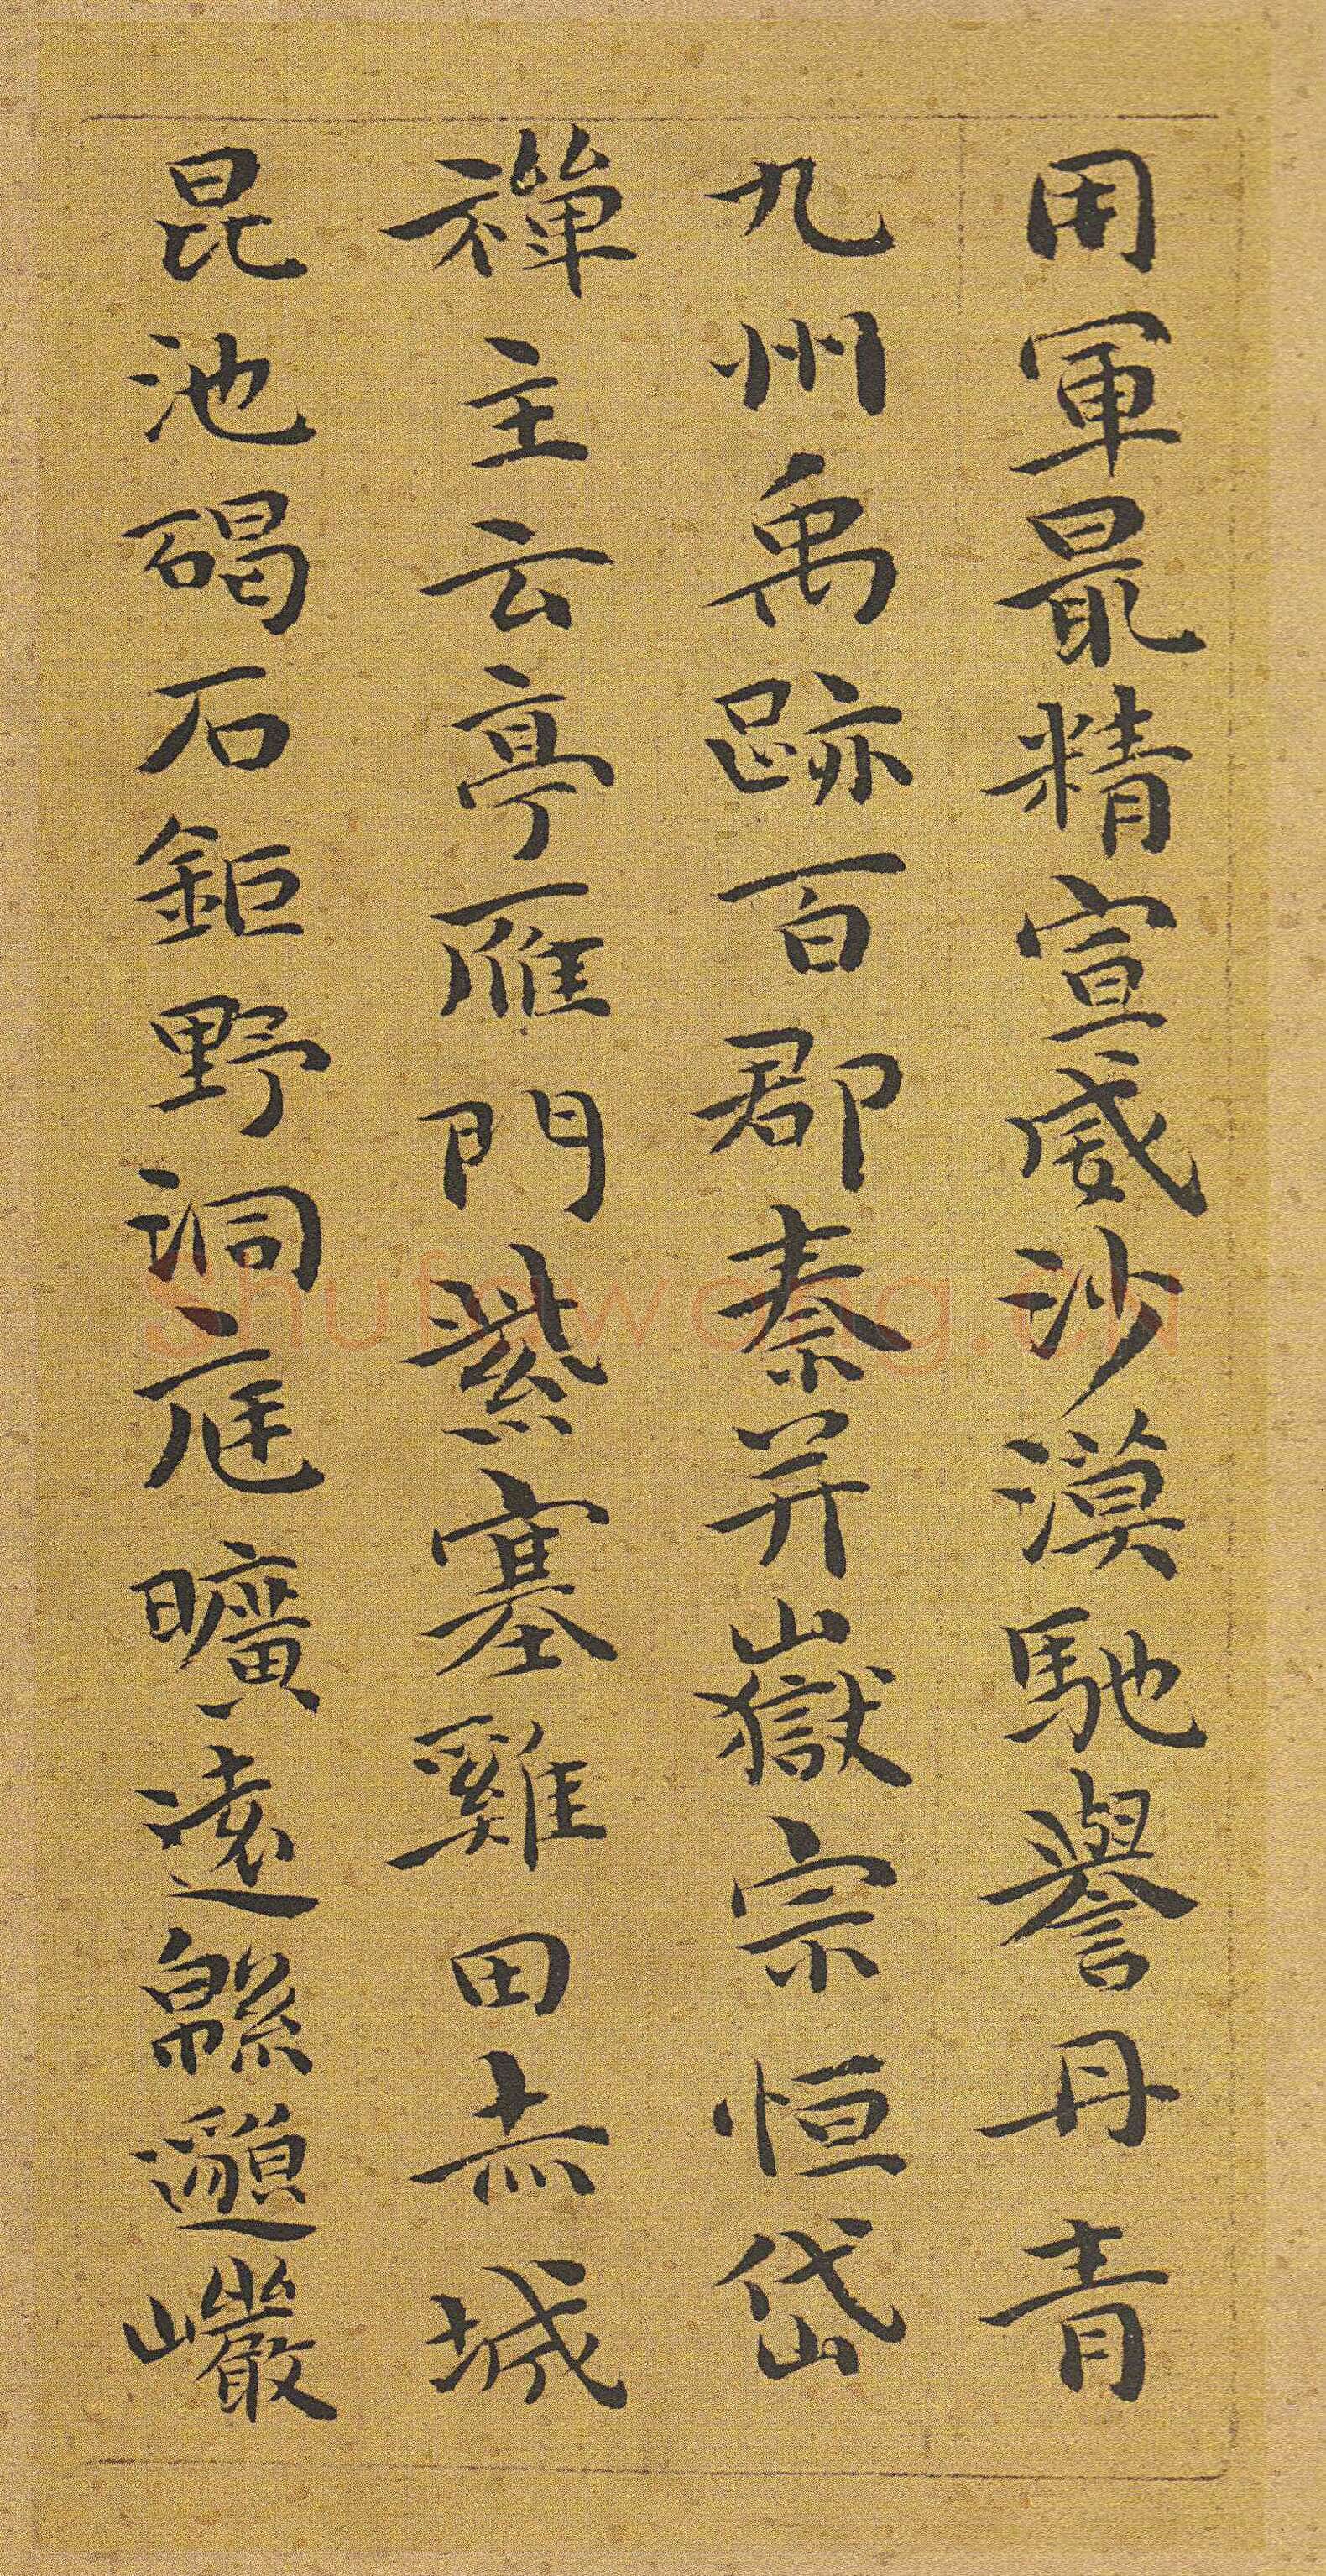 用軍最精宣威沙漠馳譽丹青
九州禹跡百郡秦并嶽宗恒岱
禪主云亭雁門紫塞雞田赤城
昆池碣石鉅野洞庭曠遠緜邈巖
Shufawang.cn